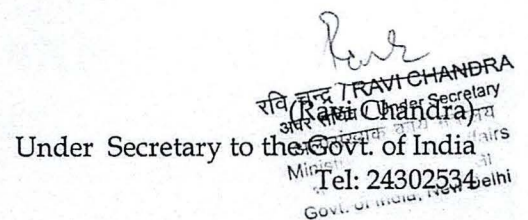 रवि चन्द्र / RAVI CHANDRA
(Ravi Chandra)
Under Secretary
Under Secretary to the Govt. of India
Tel: 24302534
Govt. of India, New Delhi